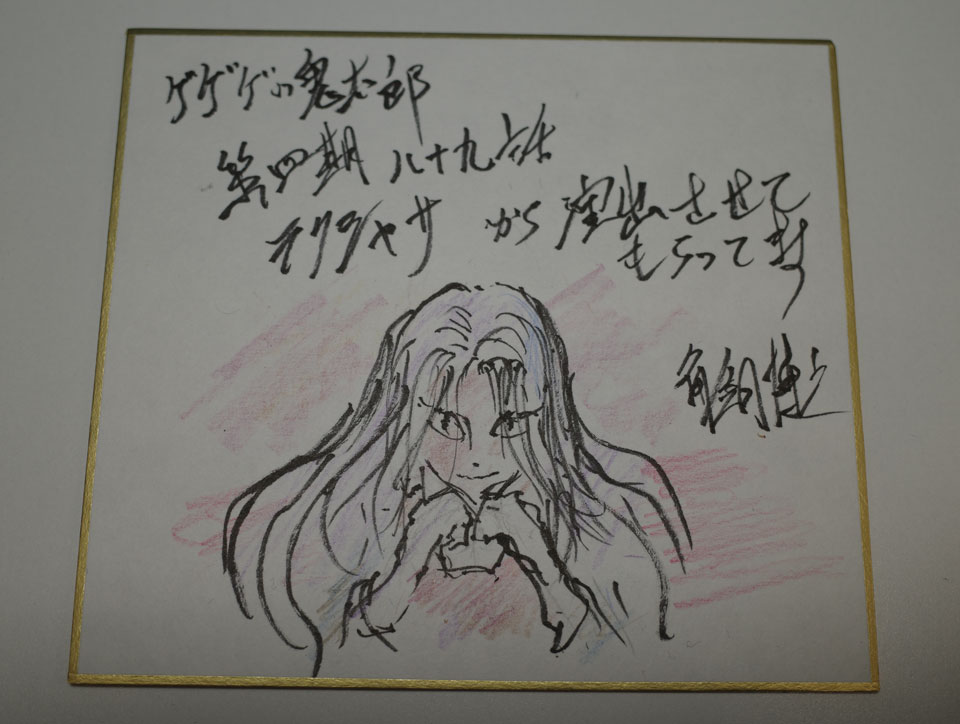 ゲゲゲの鬼太郎
第四期 八十九話
オリジャサ から演出させて
もらってます
角銅博之